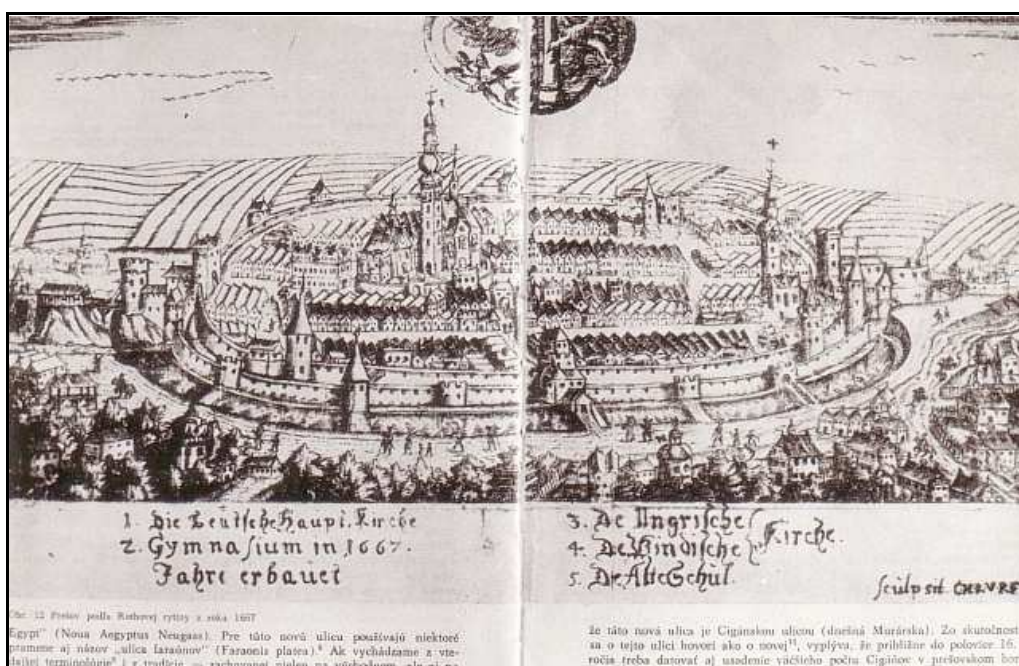 1. Die Deütsche Haupt. Kirche
2. Gymnasium in 1667.
Jahre erbauet
3. De Ungrische
4. De Windische Kirche.
5. Die Alte Schul.
sculpsit
Obr. 12 Prešov podľa Rothovej rytiny z roku 1667
Egypt“ (Noua Aegyptus Neugaas). Pre túto novú ulicu používajú niektoré
pramene aj názov „ulica faraónov“ (Faraonis platea).⁹ Ak vychádzame z vte-
dajšej terminológie i z tradície — zachovanej nielen na východnom, ale aj na
že táto nová ulica je Cigánskou ulicou (dnešná Murárska). Zo skutočnosti
sa o tejto ulici hovorí ako o novej¹¹, vyplýva, že približne do polovice 16.
ročia treba datovať aj usadenie väčšieho počtu Cigánov v prešovskom